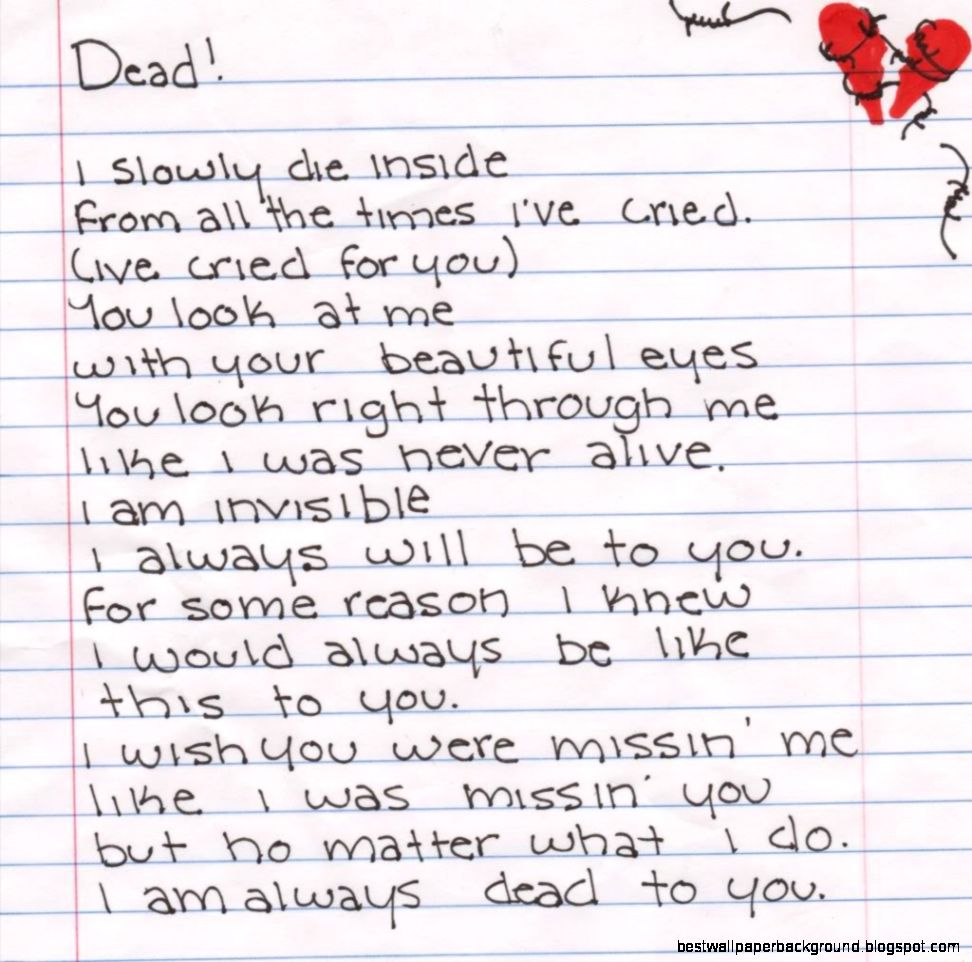 Dead!
I slowly die inside
From all the times I've cried.
(ive cried for you)
You look at me
with your beautiful eyes
You look right through me
like I was never alive.
I am invisible
I always will be to you.
For some reason I knew
I would always be like
this to you.
I wish you were missin' me
like I was missin' you
but no matter what I do.
I am always dead to you.
bestwallpaperbackground.blogspot.com